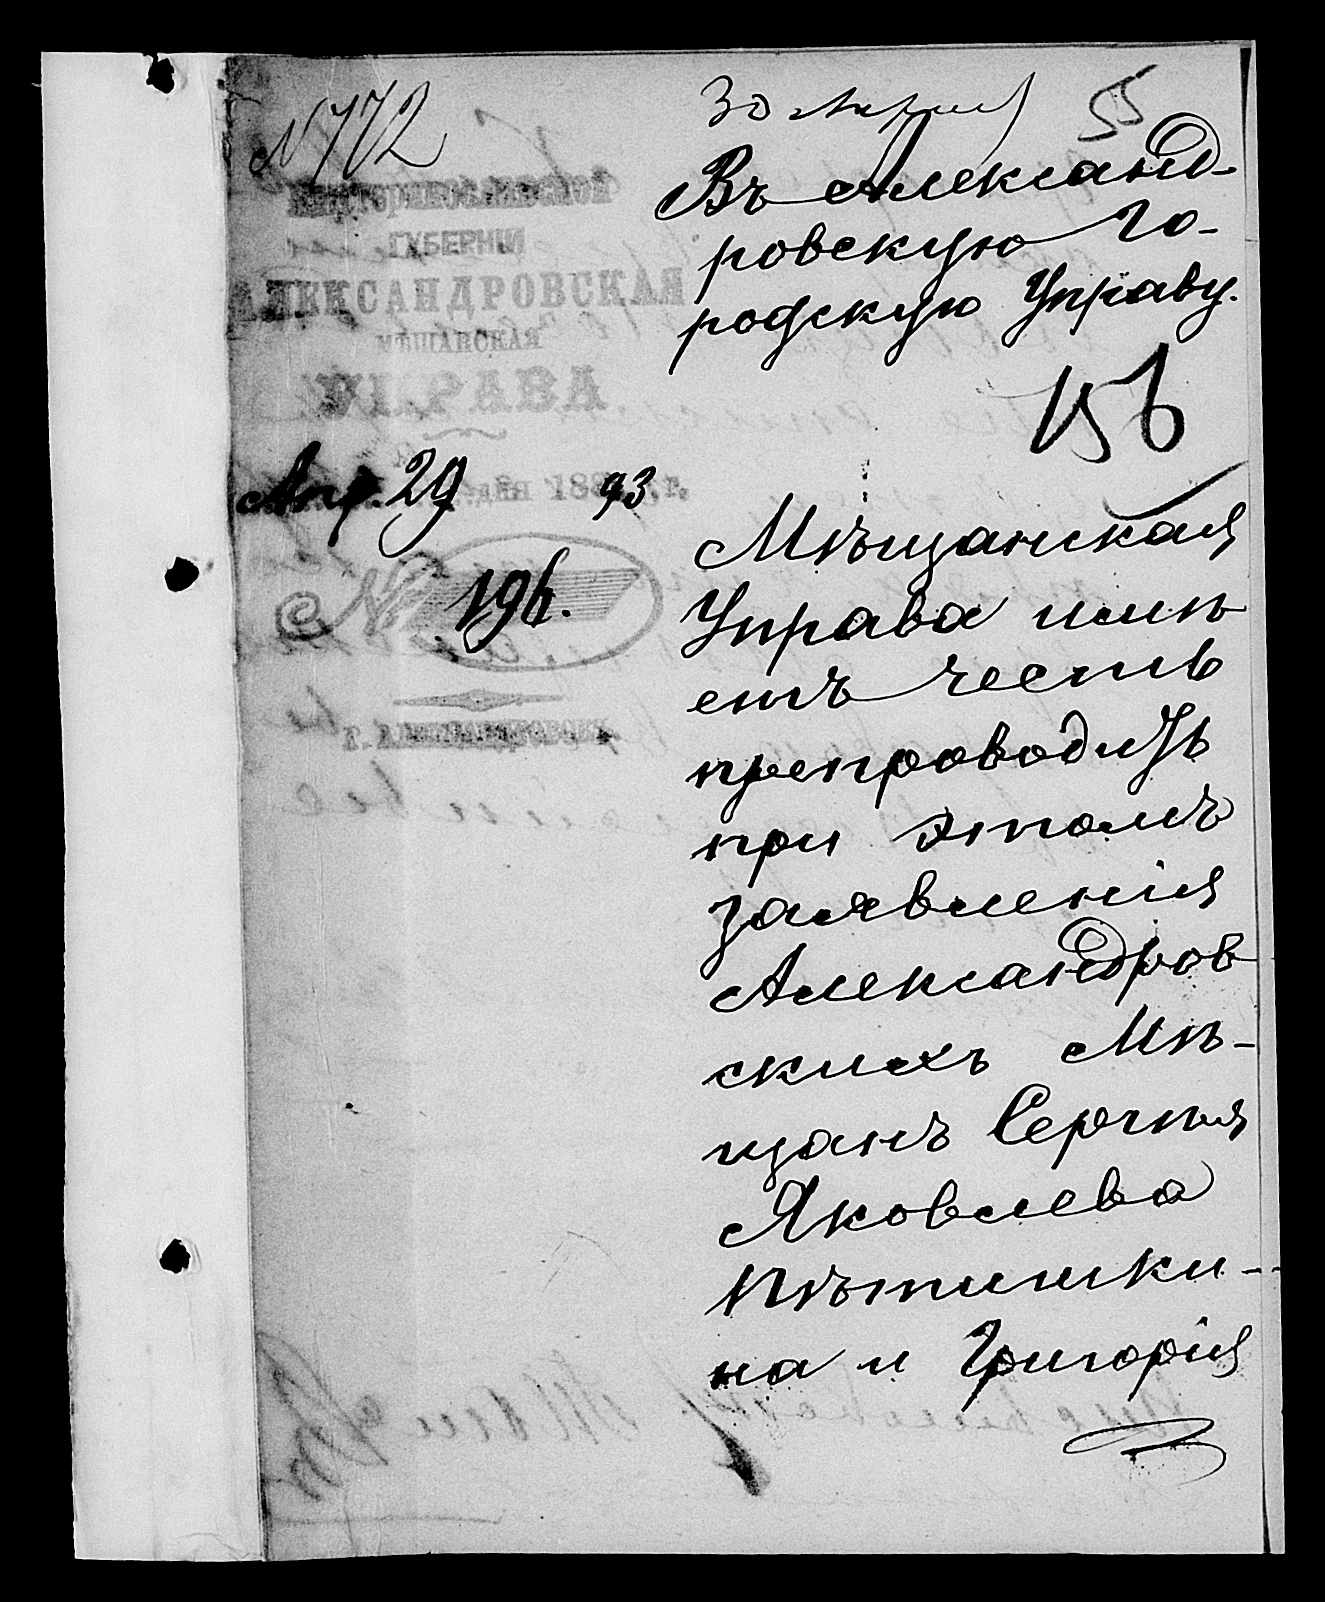 № 772
30 Апрѣля
55
Екатеринославской
ГУБЕРНІИ
АЛЕКСАНДРОВСКАЯ
МѢЩАНСКАЯ
УПРАВА
Апр. 29 дня 1893 г.
№ 196.
г. Александровскъ
Въ Александ-
ровскую Го-
родскую Управу.
156
Мѣщанская
Управа имѣ
етъ честь
препроводить
при этомъ
заявленія
Александров
скихъ Мѣ-
щанъ Сергѣя
Яковлева
Пѣтишки-
на и Григорія